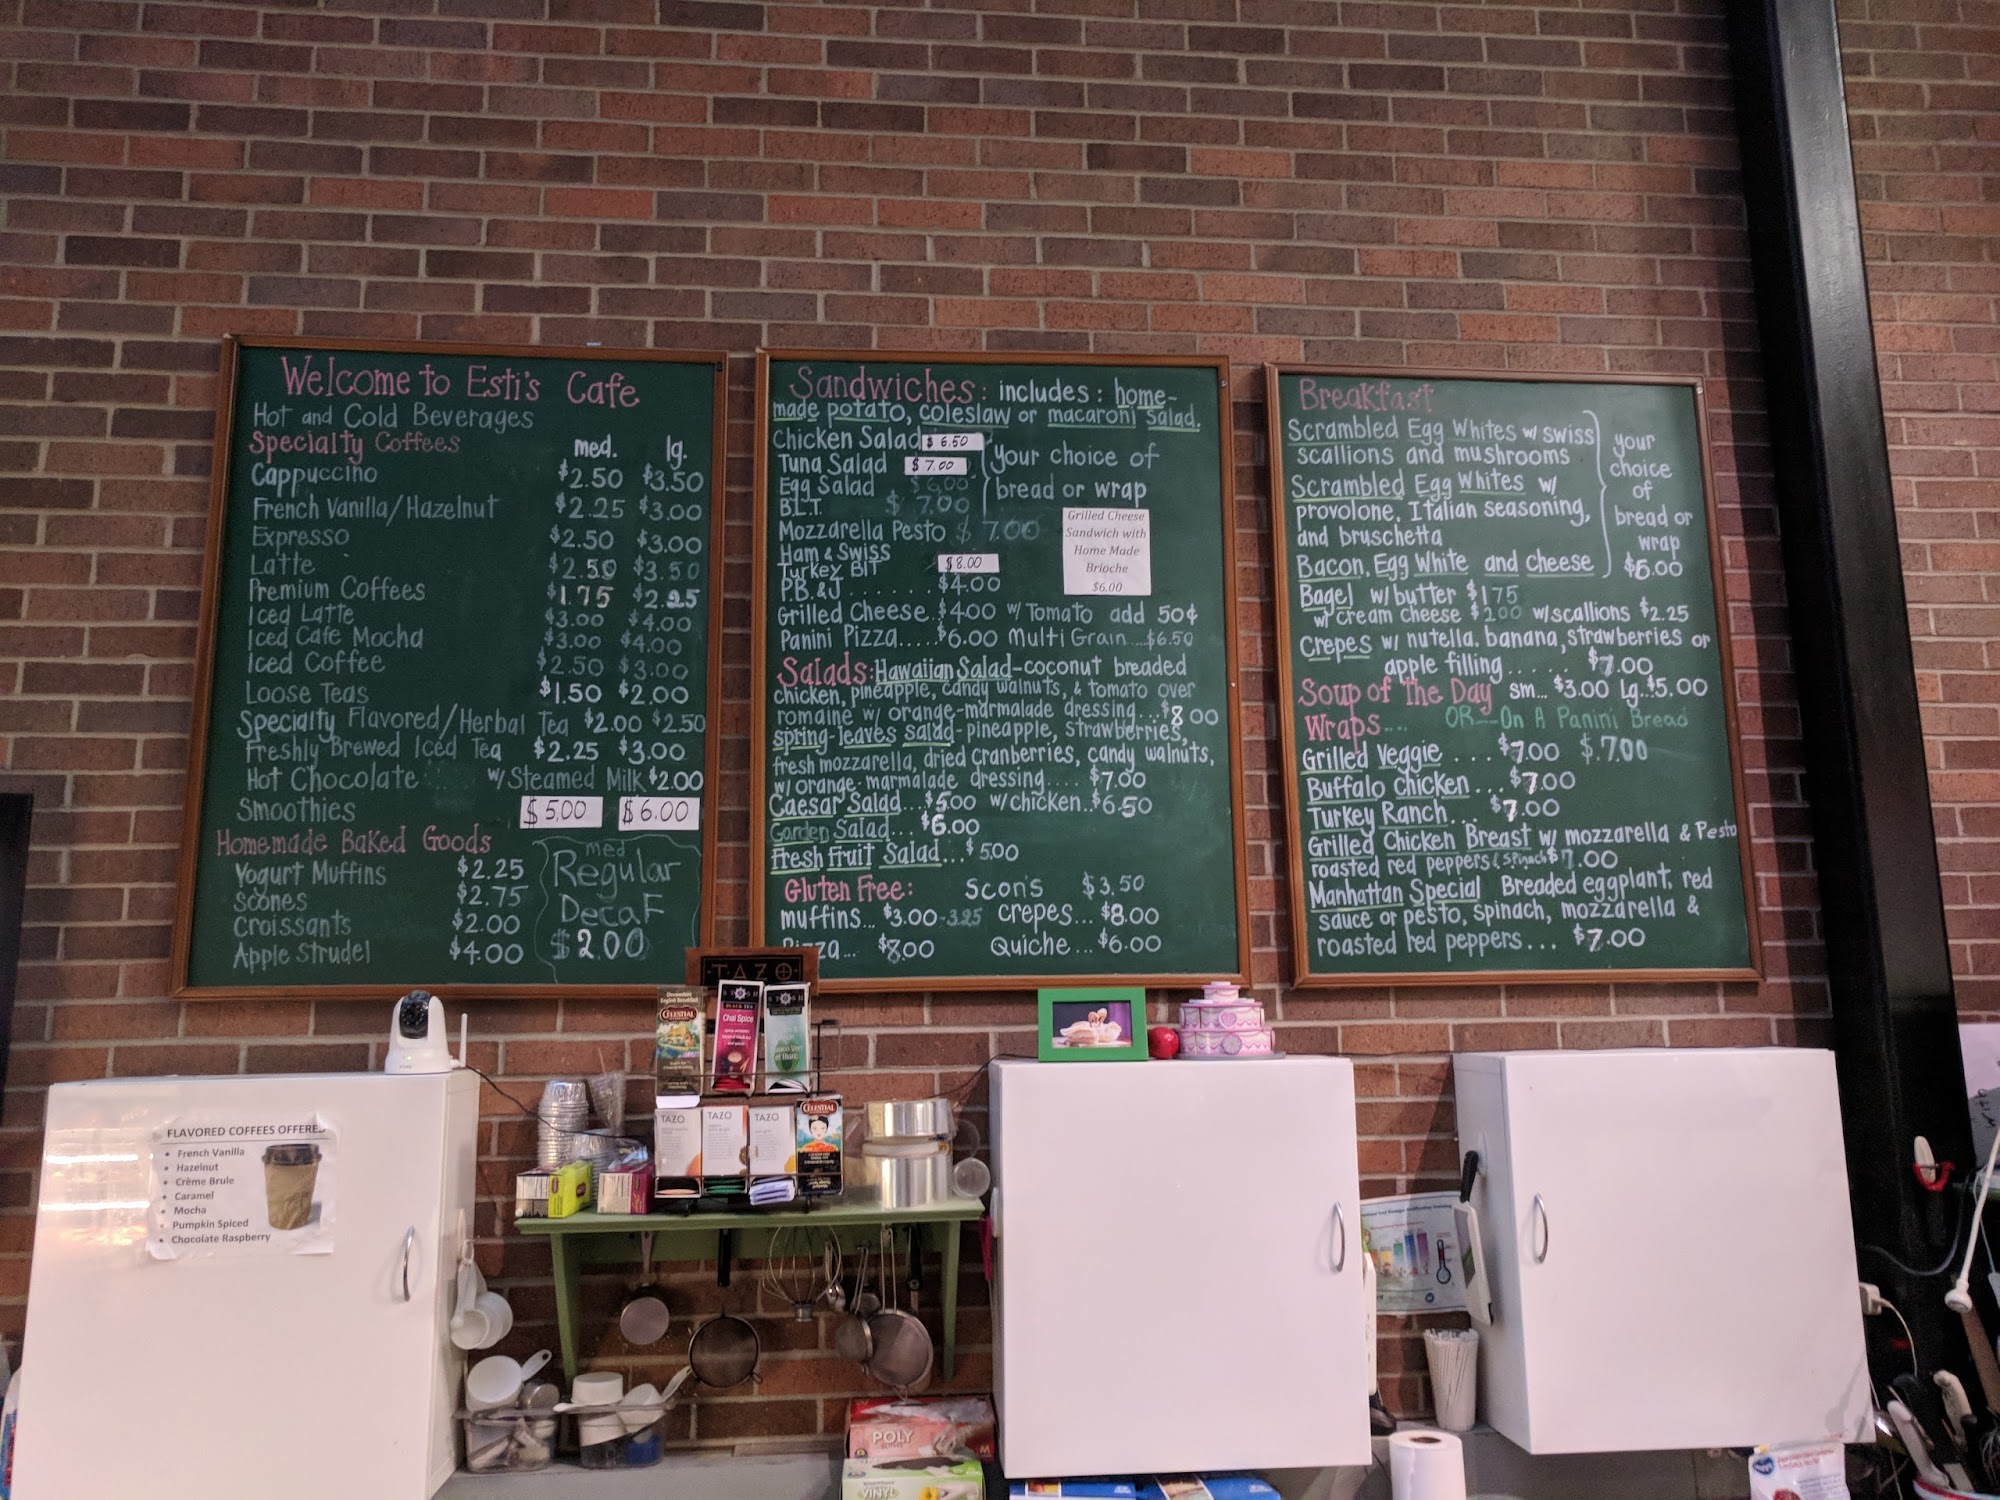 Welcome to Esti's Cafe
Hot and Cold Beverages
Specialty Coffees med. lg.
Cappuccino $2.50 $3.50
French Vanilla/Hazelnut $2.25 $3.00
Expresso $2.50 $3.00
Latte $2.50 $3.50
Premium Coffees $1.75 $2.25
Iced Latte $3.00 $4.00
Iced Cafe Mocha $3.00 $4.00
Iced Coffee $2.50 $3.00
Loose Teas $1.50 $2.00
Specialty Flavored/Herbal Tea $2.00 $2.50
Freshly Brewed Iced Tea $2.25 $3.00
Hot Chocolate w/Steamed Milk $2.00
Smoothies $5.00 $6.00
Homemade Baked Goods
Yogurt Muffins $2.25
Scones $2.75
Croissants $2.00
Apple Strudel $4.00
med
Regular
Decaf
$2.00
Sandwiches: includes: home-
made potato, coleslaw or macaroni salad.
Chicken Salad $6.50
Tuna Salad $7.00
Egg Salad $6.00
B.L.T. $7.00
your choice of
bread or wrap
Mozzarella Pesto $7.00
Ham & Swiss
Turkey BIT $8.00
P.B. & J ....... $4.00
Grilled Cheese. $4.00 w/Tomato add 50¢
Panini Pizza.....$6.00 Multi Grain...$6.50
Grilled Cheese
Sandwich with
Home Made
Brioche
$6.00
Salads: Hawaiian Salad-coconut breaded
chicken, pineapple, candy walnuts, & tomato over
romaine w/ orange-marmalade dressing...$8.00
spring-leaves salad-pineapple, strawberries,
fresh mozzarella, dried cranberries, candy walnuts,
w/orange-marmalade dressing.... $7.00
Caesar Salad...$5.00 w/chicken..$6.50
Garden Salad... $6.00
Fresh Fruit Salad...$5.00
Gluten Free: Scon's $3.50
muffins... $3.00-3.25 crepes... $8.00
Pizza... $8.00 Quiche...$6.00
Breakfast
Scrambled Egg Whites w/ swiss
scallions and mushrooms
Scrambled Egg Whites w/
provolone, Italian seasoning,
and bruschetta
Bacon, Egg White and cheese
your
choice
of
bread or
wrap
$6.00
Bagel w/butter $1.75
w/ cream cheese $2.00 w/scallions $2.25
Crepes w/ nutella, banana, strawberries or
apple filling...... $7.00
Soup of The Day sm...$3.00 lg..$5.00
Wraps... OR---On A Panini Bread
Grilled Veggie .... $7.00 $.7.00
Buffalo chicken... $7.00
Turkey Ranch... $7.00
Grilled Chicken Breast w/ mozzarella & Pesto
roasted red peppers & spinach $7.00
Manhattan Special Breaded eggplant, red
sauce or pesto, spinach, mozzarella &
roasted red peppers... $7.00
TAZO
CELESTIAL
Chai Spice
TAZO TAZO TAZO
CELESTIAL
FLAVORED COFFEES OFFERED
• French Vanilla
• Hazelnut
• Crème Brule
• Caramel
• Mocha
• Pumpkin Spiced
• Chocolate Raspberry
POLY
M
VINYL